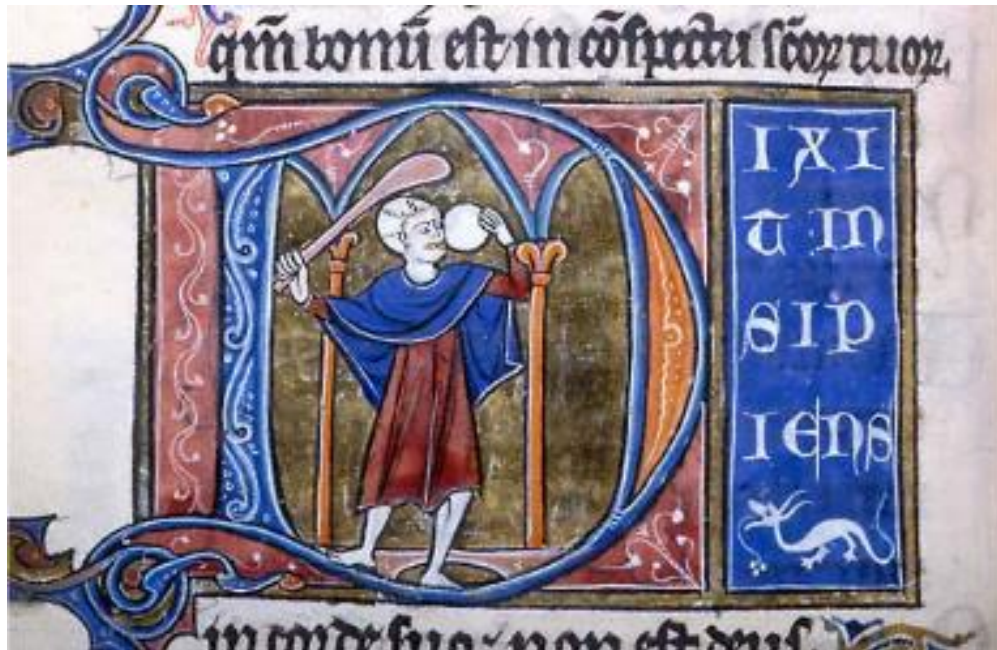 qm̄ bonū est in cōspectu scōꝝ tuoꝝ.
D
IXI
T IN
SIP
IENS
in corde suo: non est deus.